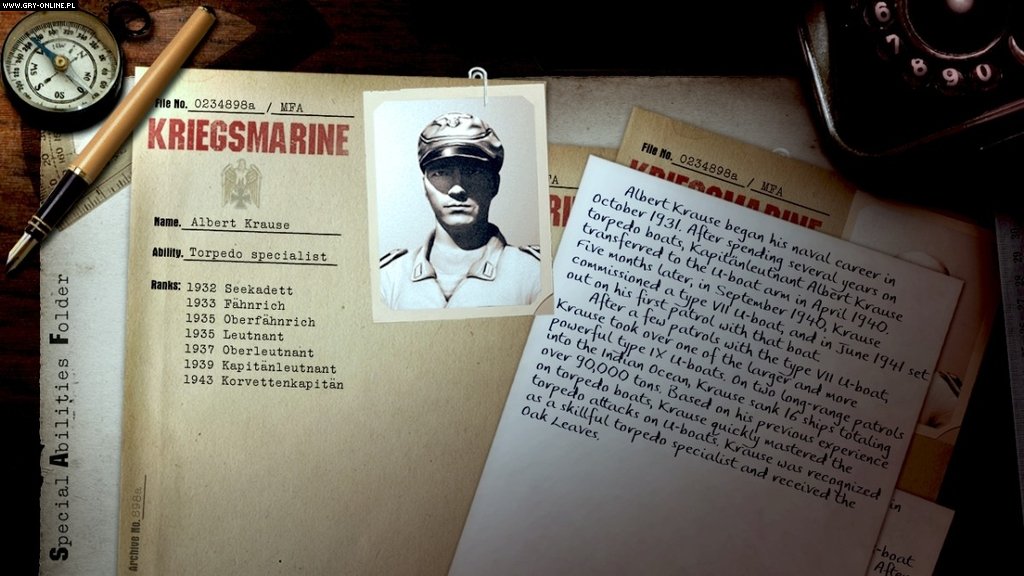 WWW.GRY-ONLINE.PL
File No. 0234898a / MFA
KRIEGSMARINE
Name. Albert Krause
Ability. Torpedo specialist
Ranks: 1932 Seekadett
1933 Fähnrich
1935 Oberfähnrich
1935 Leutnant
1937 Oberleutnant
1939 Kapitänleutnant
1943 Korvettenkapitän
Special Abilities Folder
Archive No. 898a
File No. 0234898a / MFA
KRIEGSMARINE
Albert Krause began his naval career in
October 1931. After spending several years on
torpedo boats, Kapitänleutnant Albert Krause
transferred to the U-boat arm in April 1940.
Five months later, in September 1940, Krause
commissioned a type VII U-boat, and in June 1941 set
out on his first patrol with that boat.
After a few patrols with the type VII U-boat,
Krause took over one of the larger and more
powerful type IX U-boats. On two long-range patrols
into the Indian Ocean, Krause sank 16 ships totaling
over 90,000 tons. Based on his previous experience
on torpedo boats, Krause quickly mastered the
torpedo attacks on U-boats. Krause was recognized
as a skillful torpedo specialist and received the
Oak Leaves.
in
-boat
After
6
7
8
9
0